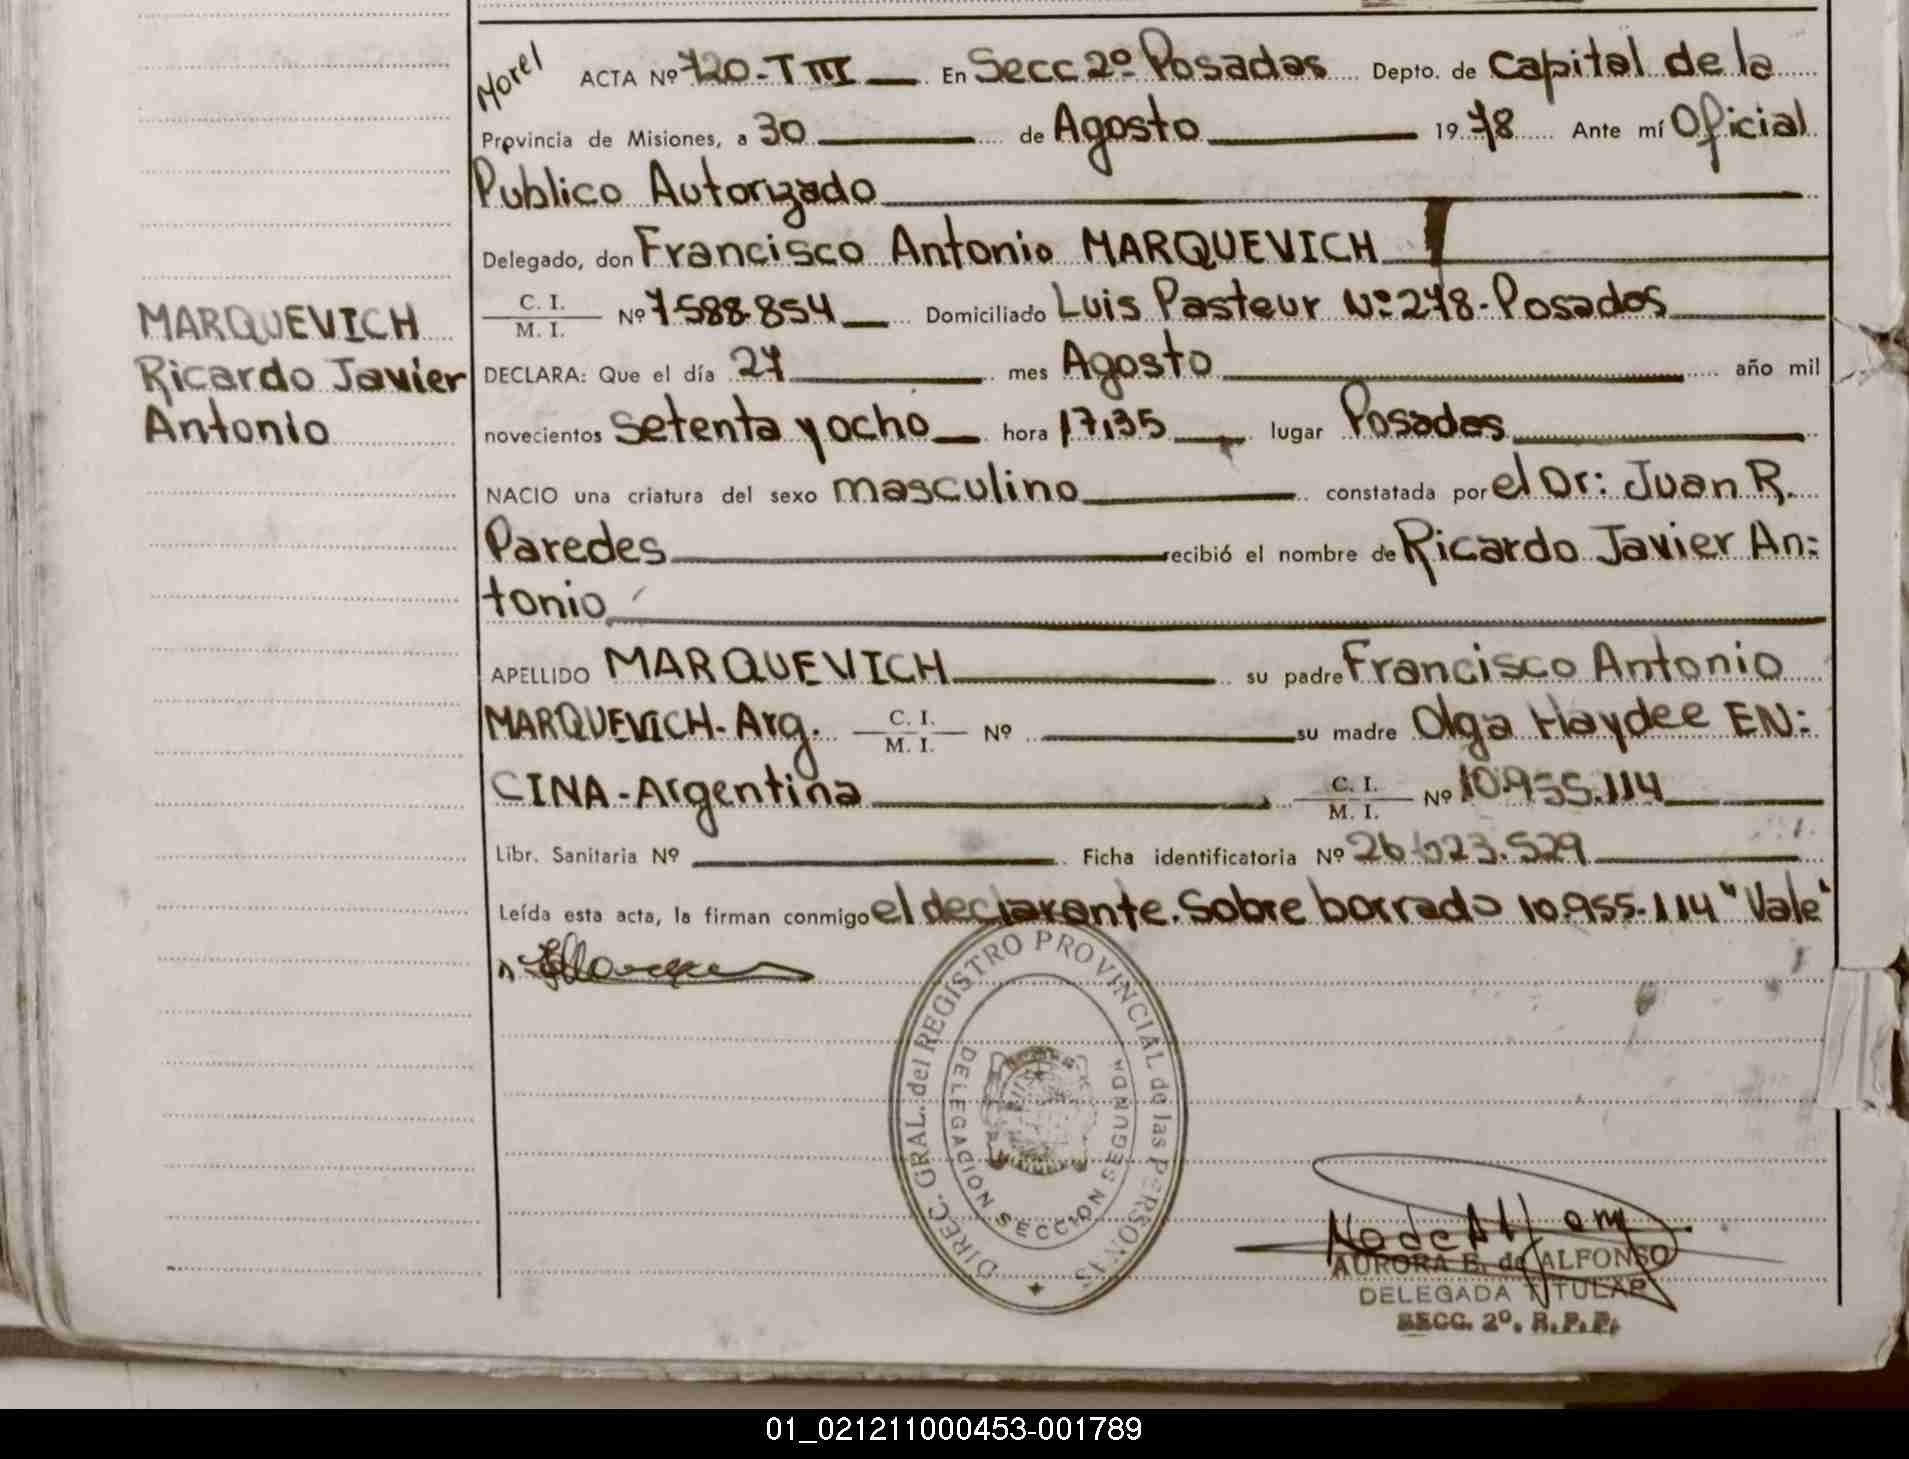 Morel
ACTA Nº 720-T III En Secc 2º Posadas Depto. de Capital de la
Provincia de Misiones, a 30 de Agosto 1978 Ante mí Oficial
Publico Autorizado
Delegado, don Francisco Antonio MARQUEVICH
C. I.
M. I.
Nº 7.588.854 Domiciliado Luis Pasteur Nº 278-Posadas
MARQUEVICH
Ricardo Javier
Antonio
DECLARA: Que el día 27 mes Agosto año mil
novecientos setenta y ocho hora 17,35 lugar Posadas
NACIO una criatura del sexo masculino constatada por el Dr: Juan R.
Paredes recibió el nombre de Ricardo Javier An=
tonio
APELLIDO MARQUEVICH su padre Francisco Antonio
MARQUEVICH-Arg. C. I. M. I. Nº su madre Olga Haydee EN=
CINA-Argentina C. I. M. I. Nº 10.955.114
Libr. Sanitaria Nº Ficha identificatoria Nº
Leída esta acta, la firman conmigo el declarante. Sobre borrado 10.955.114 "Vale"
DIREC. GRAL. del REGISTRO PROVINCIAL de las PERSONAS
DELEGACION SECCION SEGUNDA
AURORA E. de ALFONSO
DELEGADA TITULAR
SECC. 2º. R.P.P.
01_021211000453-001789